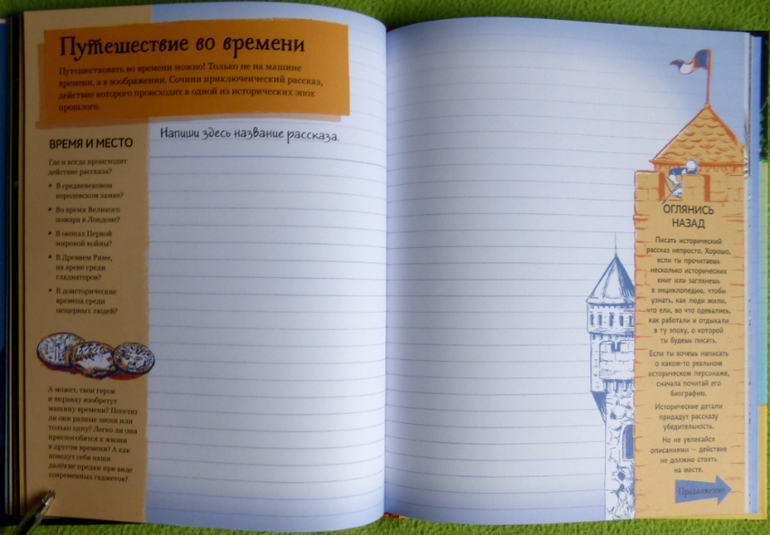 Путешествие во времени
Путешествовать во времени можно! Только не на машине
времени, а в воображении. Сочини приключенческий рассказ,
действие которого происходит в одной из исторических эпох
прошлого.
ВРЕМЯ И МЕСТО
Где и когда происходит
действие рассказа?
• В средневековом
королевском замке?
• Во время Великого
пожара в Лондоне?
• В окопах Первой
мировой войны?
• В Древнем Риме,
на арене среди
гладиаторов?
• В доисторические
времена среди
пещерных людей?
А может, твои герои
и вправду изобретут
машину времени? Посетят
ли они разные эпохи или
только одну? Легко ли они
приспособятся к жизни
в другом времени? А как
поведут себя наши
далёкие предки при виде
современных гаджетов?
Напиши здесь название рассказа.
ОГЛЯНИСЬ
НАЗАД
Писать исторический
рассказ непросто. Хорошо,
если ты прочитаешь
несколько исторических
книг или заглянешь
в энциклопедию, чтобы
узнать, как люди жили,
что ели, во что одевались,
как работали и отдыхали
в ту эпоху, о которой
ты будешь писать.
Если ты хочешь написать
о каком-то реальном
историческом персонаже,
сначала почитай его
биографию.
Исторические детали
придадут рассказу
убедительность.
Но не увлекайся
описаниями – действие
не должно стоять
на месте.
Продолжение